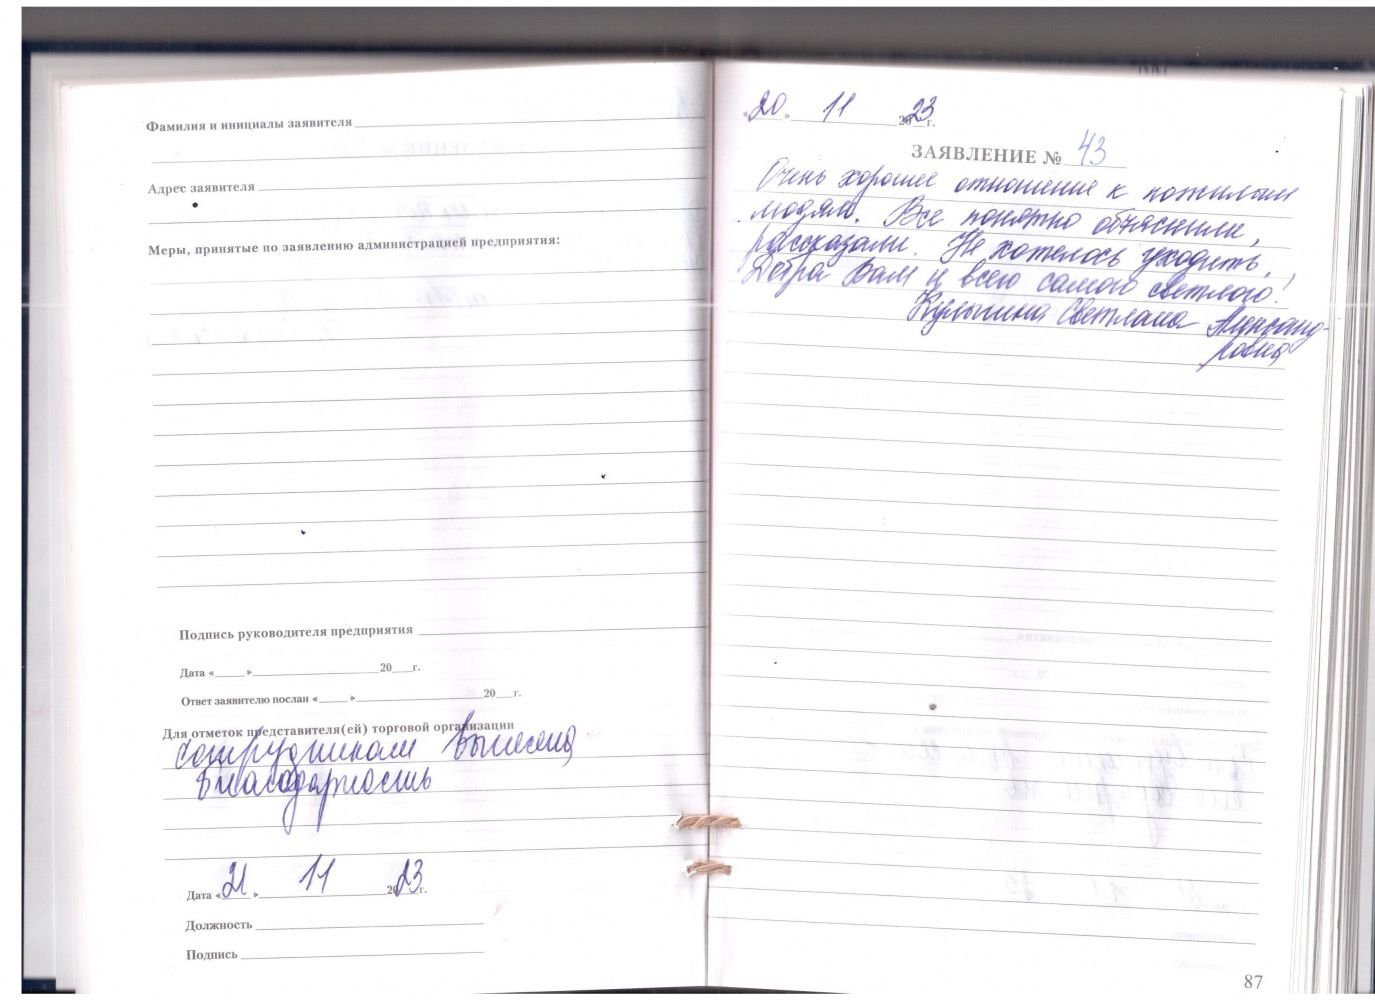 Фамилия и инициалы заявителя
Адрес заявителя
Меры, принятые по заявлению администрацией предприятия:
Подпись руководителя предприятия
Дата «____»____20__г.
Ответ заявителю послан «____»____20__г.
Для отметок представителя(ей) торговой организации
сотрудникам вынесена
благодарность
Дата «21» 11 2023г.
Должность
Подпись
«20» 11 2023г.
ЗАЯВЛЕНИЕ № 43
Очень хорошее отношение к пожилым
людям. Все понятно объяснили,
рассказали. Не хотелось уходить,
Добра Вам и всего самого светлого!
Светлана Александ-
ровна
87